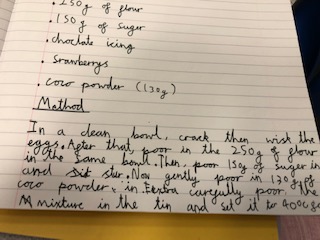 . 250g of flour
. 150g of suger
. choclate icing
. Sranberrys
. coco powder (130g)
Method
In a clean bowl, crack then wisk the
eggs. After that, poor in the 250g of flour
in the same bowl. Then, poor 150g of suger in
and stir. Now gently poor in 130g of
coco powder in. Exstra carefully poor the
mixture in the tin and set it to 400°C